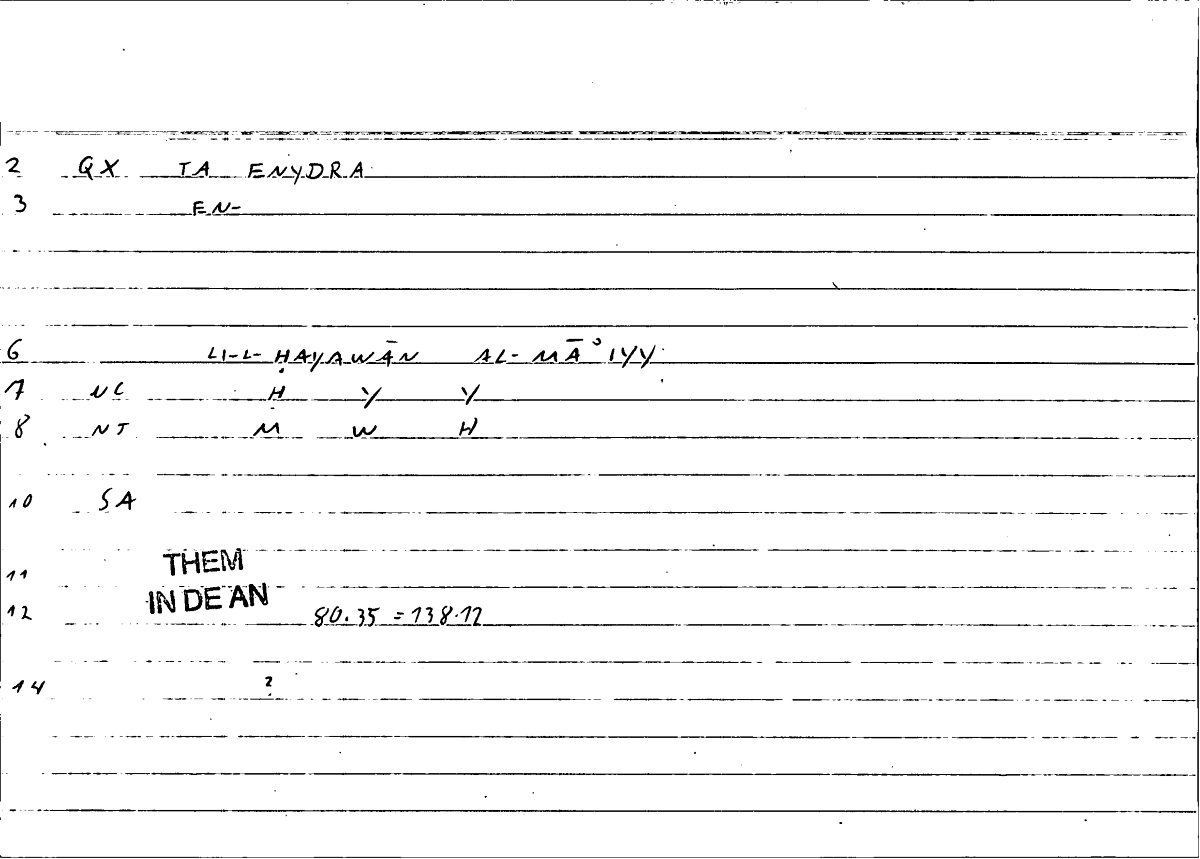 2 QX TA ENYDRA
3 EN-
6 LI-L- ḤAYAWĀN AL- MĀʾIYY
7 NC Ḥ Y Y
8 NT M W H
10 SA
11 THEM
IN DE AN
12 80.35 = 138.12
14 2